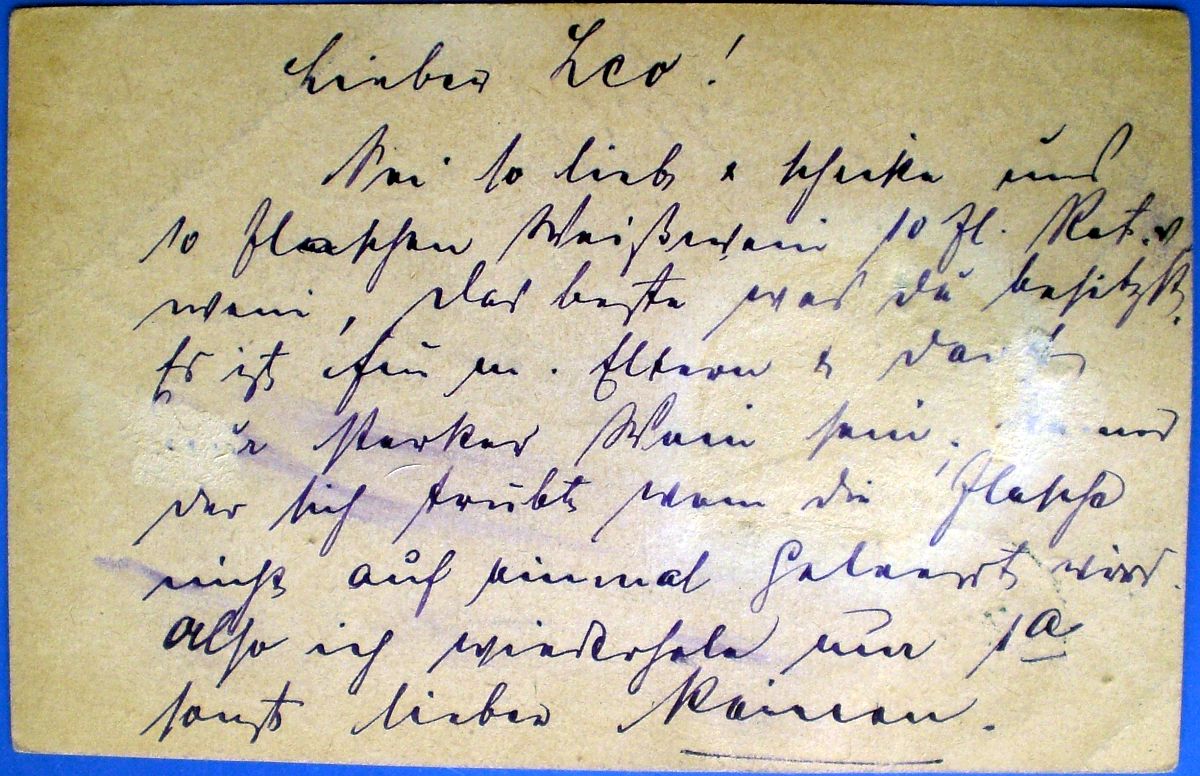 Lieber Leo!
Sei so lieb & schicke uns
10 Flaschen Weißwein 10 Fl. Rot-
wein, das beste was du besitzst.
Es ist für m. Eltern & darf
nur starker Wein sein,
der sich trübt wenn die Flasche
nicht auf einmal geleert wird.
Also ich wiederhole nur 1a
sonst lieber keinen.